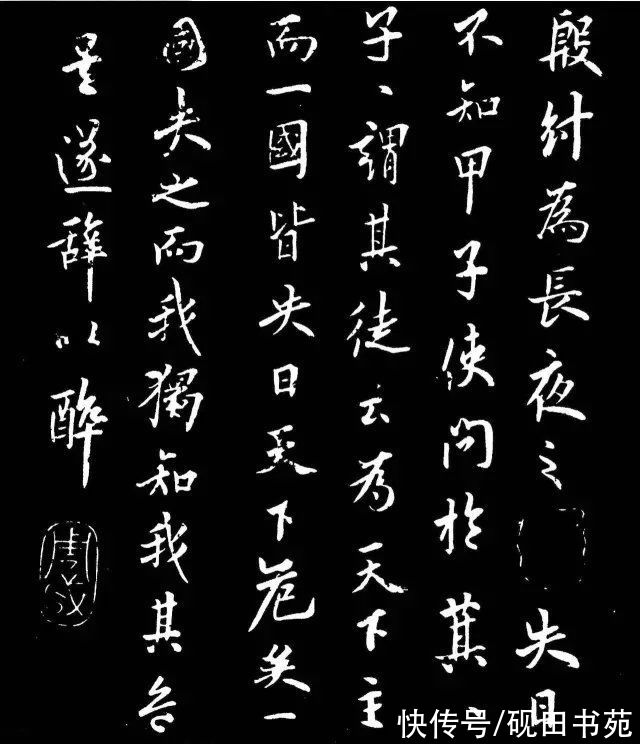 殷紂為長夜之失日
不知甲子使問於萁
子〻謂其徒云為天下主
而一國皆失日天下危矣一
國失之而我獨知我其
遂辭以醉
快传号/砚田书苑